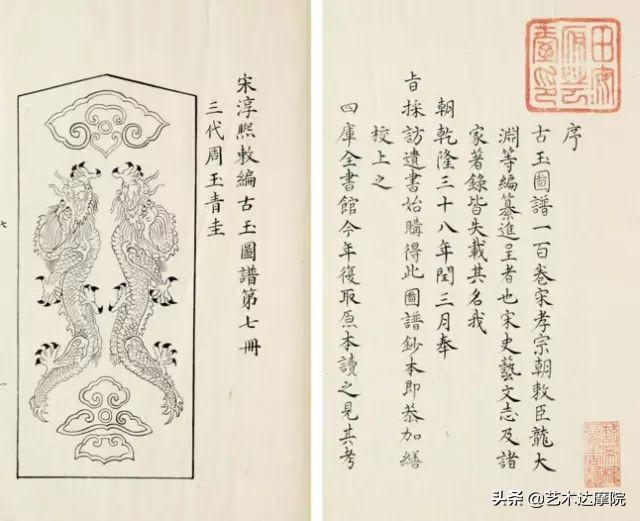 序
古玉圖譜一百卷宋孝宗朝敕臣龍大
淵等編纂進呈者也宋史藝文志及諸
家著錄皆失載其名我
朝乾隆三十八年閏三月奉
旨採訪遺書始購得此圖譜鈔本即恭加繕
校上之
四庫全書館今年復取原本讀之見其考
宋淳熙敕編古玉圖譜第七冊
三代周玉青圭
七
一
头条 @艺术达摩院